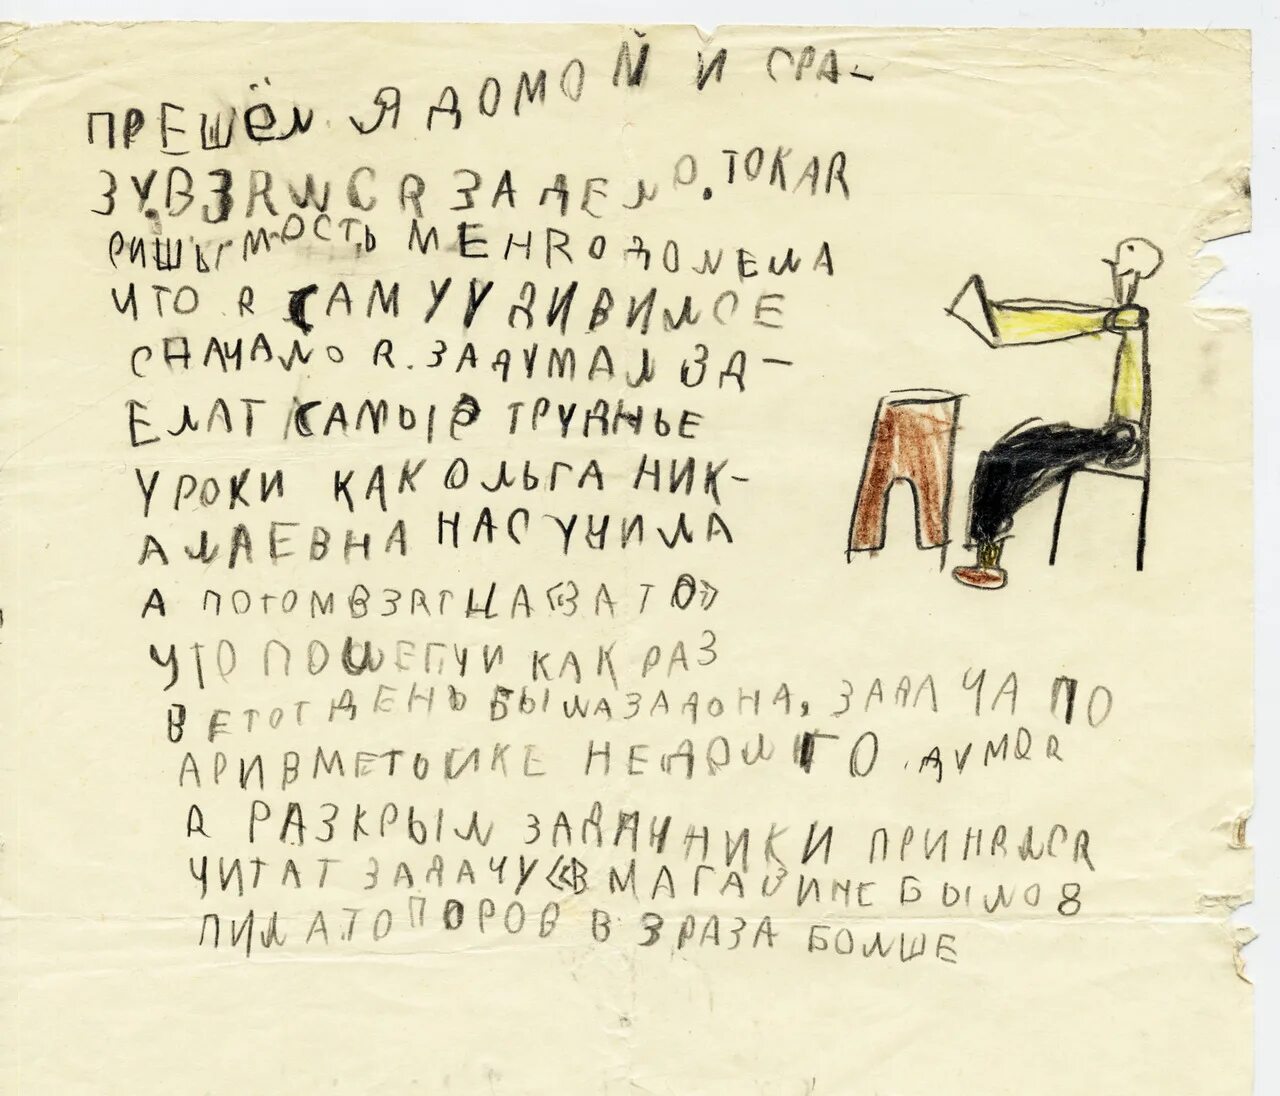 ПРЕШЁЛ Я ДОМОЙ И СРА-
ЗУ ВЗЯЛСЯ ЗА ДЕЛО. ТОКАЯ
РИШЫМОСТЬ МЕНЯ ОДОЛЕЛА
ЧТО Я САМ У УДИВИЛСЕ
СНАЧАЛО Я. ЗАДУМАЛ ЗД-
ЕЛАТ САМЫЕ ТРУДНЬЕ
УРОКИ КАК ОЛЬГА НИК-
АЛАЕВНА НАС УЧИЛА
А ПОТОМ ВЗЯТЦА «ЗА ТО»
ЧТО ПОШЕГЧИ КАК РАЗ
В ЕТОТ ДЕНЬ БЫЛА ЗАДОНА, ЗАДАЧА ПО
АРИВМЕТЫИКЕ НЕДОЛГО. ДУМАЯ
Я РАЗКРЫЛ ЗАДАЧНИК И ПРИНЯЛСЯ
ЧИТАТ ЗАДАЧУ «В МАГАЗИНЕ БЫЛО 8
ПИЛ А ТОПОРОВ В 3 РАЗА БОЛШЕ